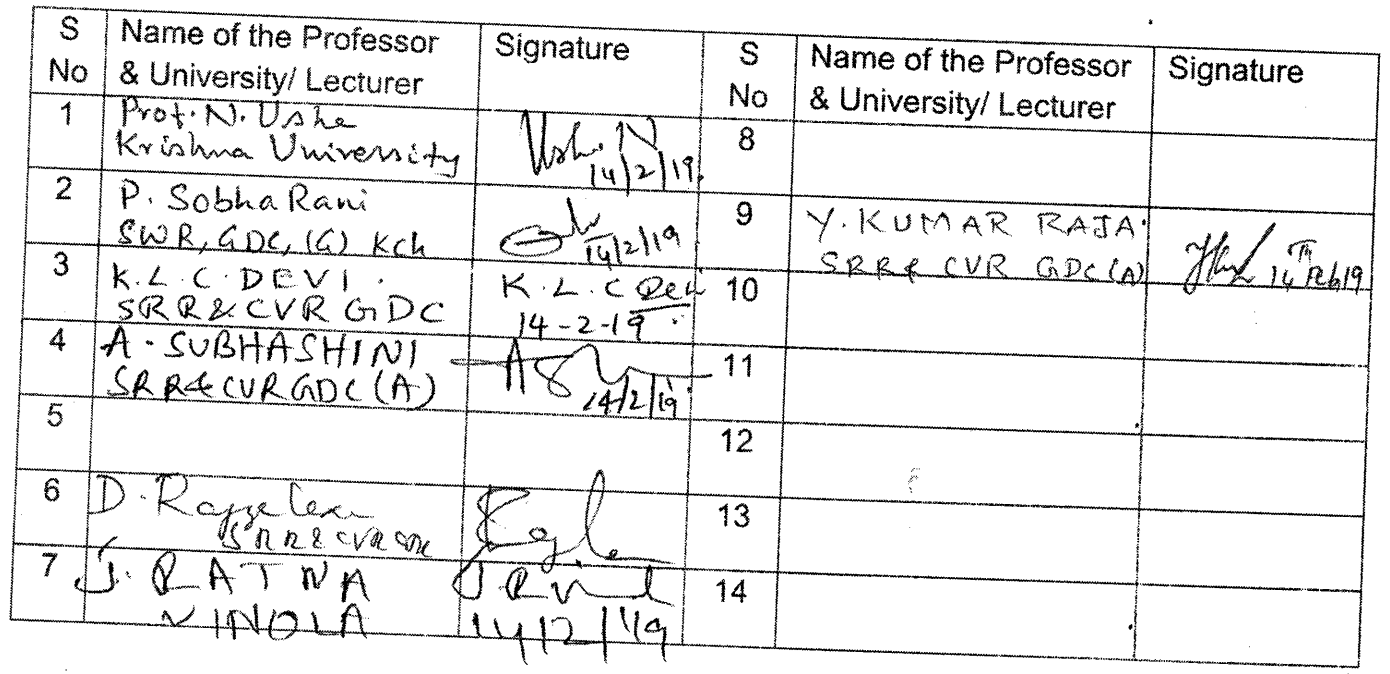 S No
Name of the Professor & University/ Lecturer
Signature
S No
Name of the Professor & University/ Lecturer
Signature
1
Prof. N. Usha
Krishna University
Usha. N
14/2/19.
8
2
P. Sobha Rani
SWR, GDC, (G) Kch
14/2/19
9
Y. KUMAR RAJA.
SRR & CVR GDC (A)
14 Th Feb 19
3
K.L.C. DEVI.
SRR & CVR GDC
K.L.C Devi
14-2-19
10
4
A. SUBHASHINI
SRR & CVR GDC (A)
14/2/19
11
5
12
6
D.
SRR & CVR GDC
13
7
J. RATNA
VINOLA
14/2/19
14